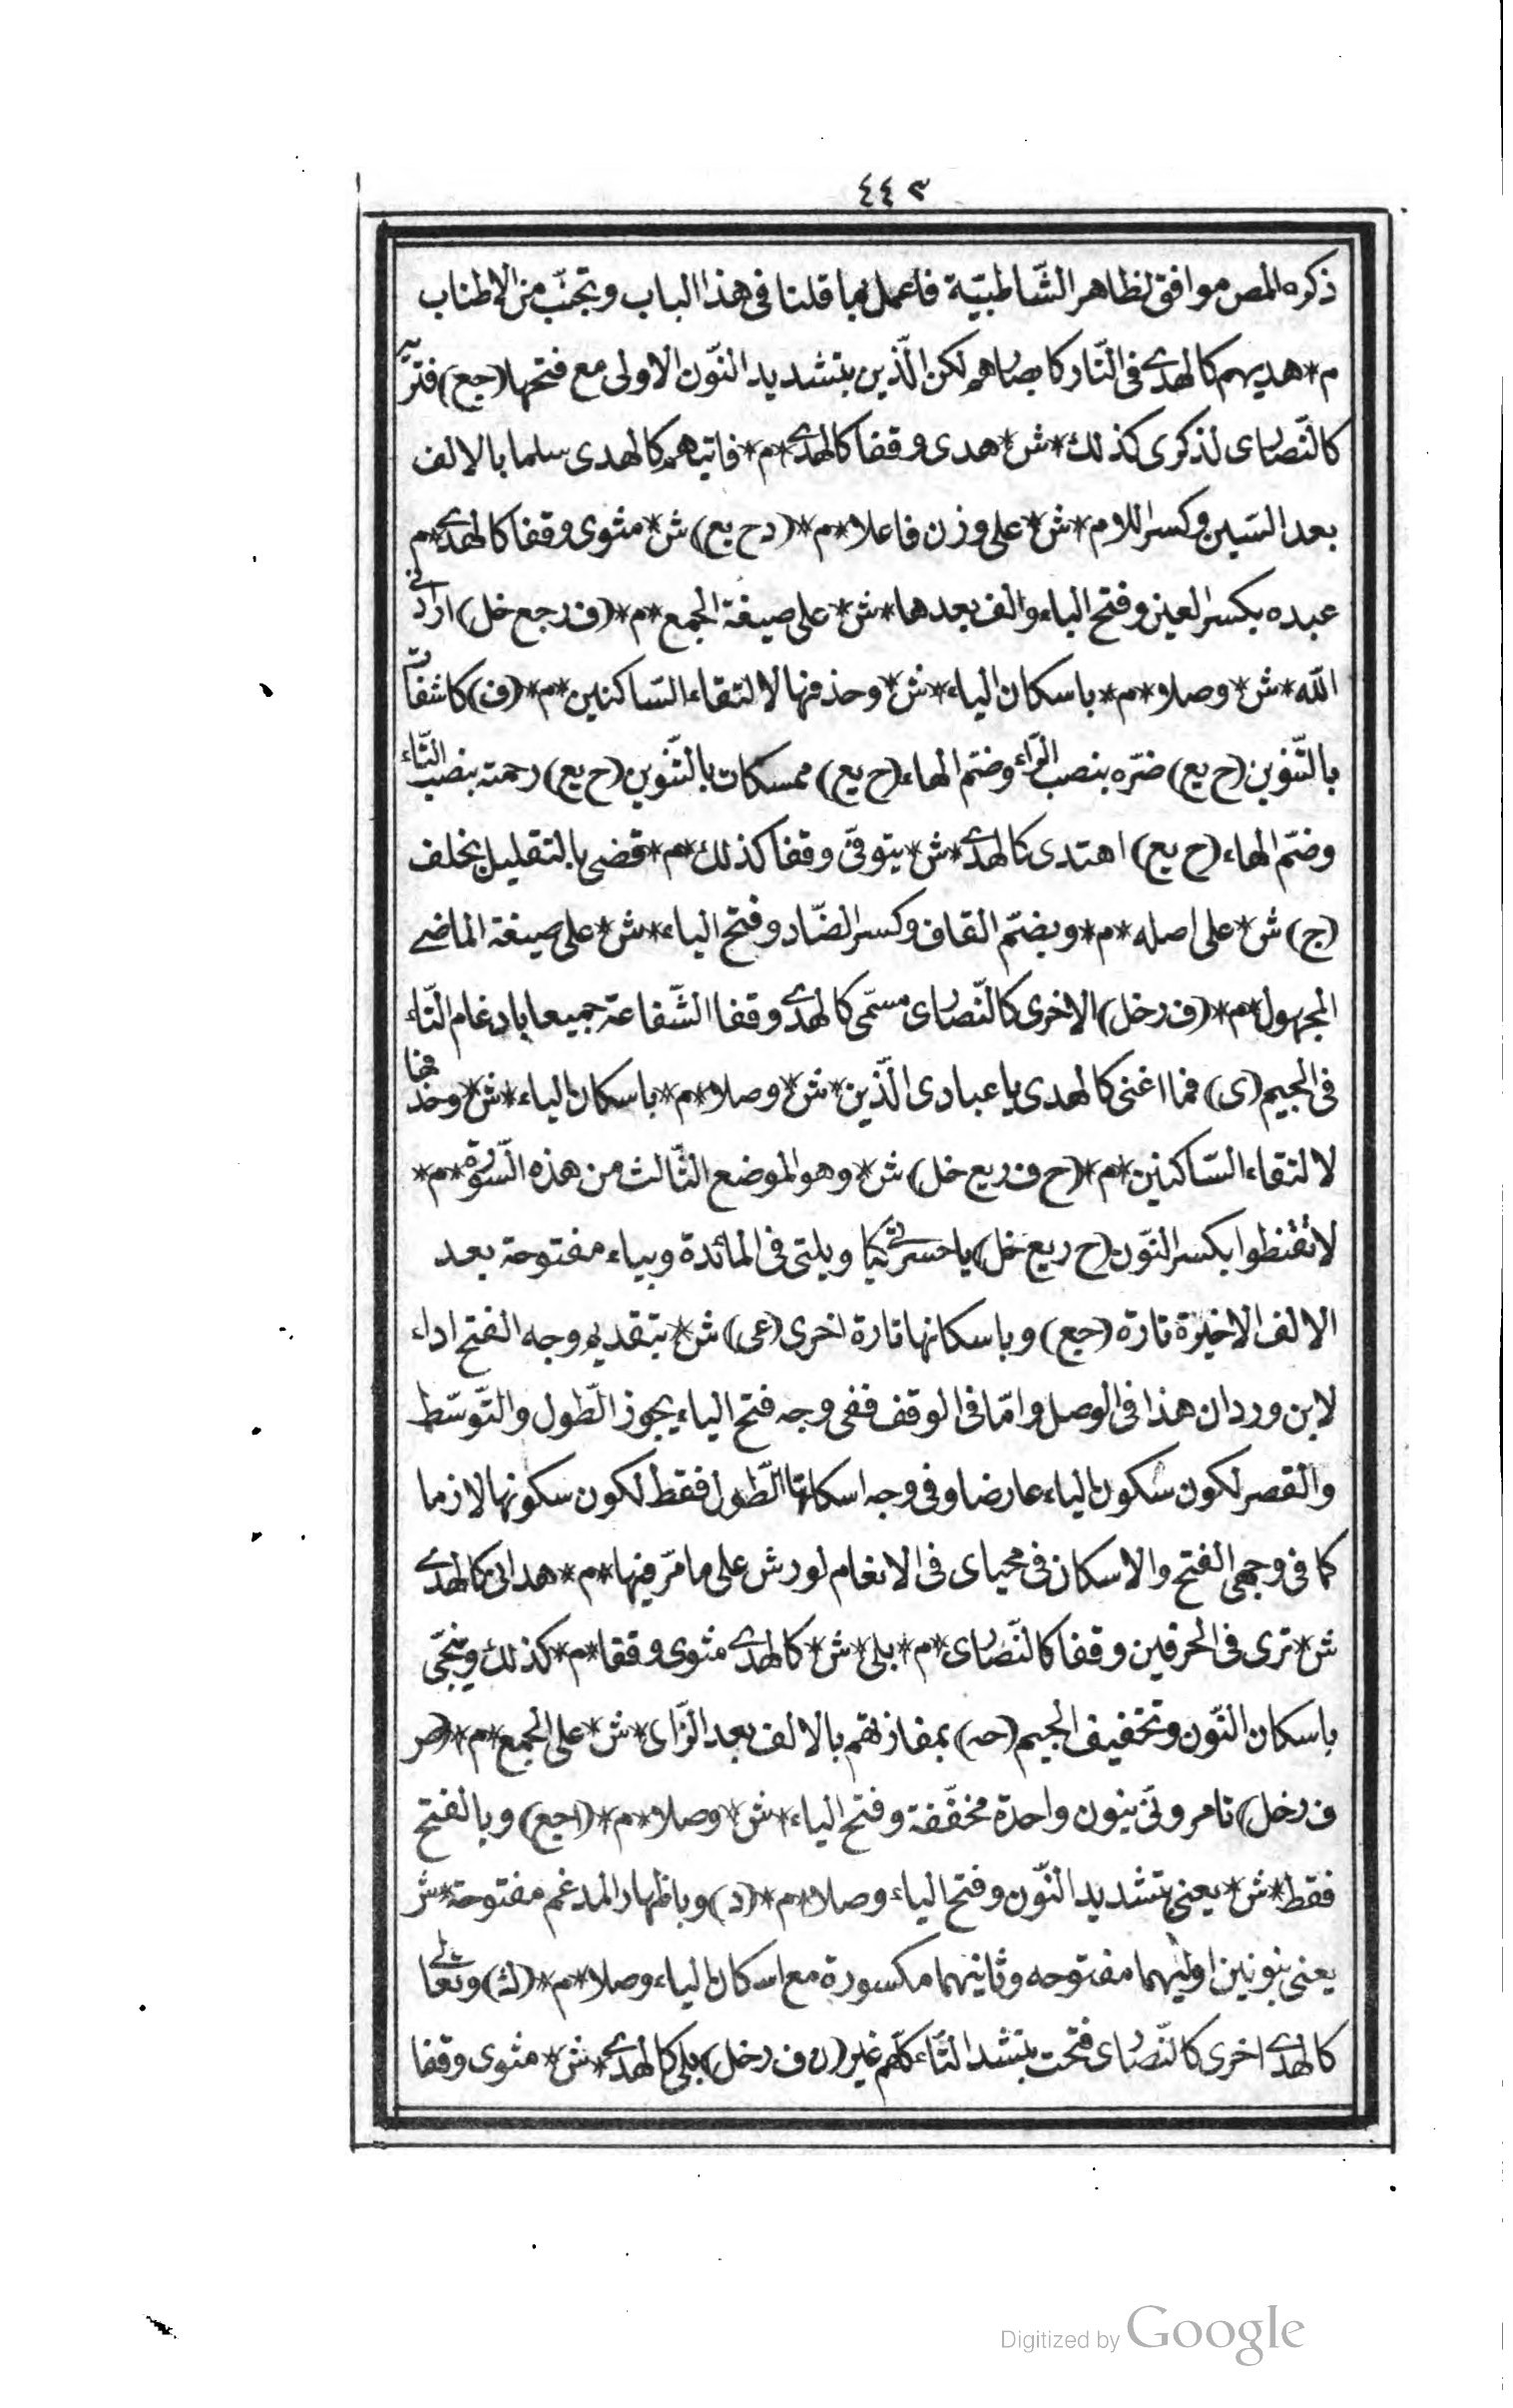 ٤٤٣
ذكره المص موافق لظاهر الشّاطبيّة فاعمل بما قلنا فى هذا الباب وتجنّب من الاطناب
م* هديهم كالهدى فى النّار كابصارهم لكن الّذين بتشديد النّون الاولى مع فتحها (جع) فتريه
كالنّصارى لذكرى كذلك* ش* هدى وقفا كالهدى* م* فاتيهم كالهدى سلما بالالف
بعد السّين وكسر اللام* ش* على وزن فاعلا* م* (دح يع) ش* مثوى وقفا كالهدى* م
عبده بكسر العين وفتح الباء والف بعدها* ش* على صيغة الجمع* م* (ف رجع خل) ارادنى
اللّه* ش* وصلا* م* باسكان الياء* ش* وحذفها لالتقاء السّاكنين* م* (ف) كاشفات
بالتّنوين (ح يع) ضرّه بنصب الرّاء وضمّ الهاء (ح يع) ممسكات بالتّنوين (ح يع) رحمته بنصب التّاء
وضمّ الهاء (ح يع) اهتدى كالهدى* ش* يتوفّى وقفا كذلك* م* قضى بالتقليل بخلف
(ج) ش* على اصله* م* وبضمّ القاف وكسر الضّاد وفتح الياء* ش* على صيغة الماضى
المجهول* م* (ف رخل) الاخرى كالنّصارى مسمّى كالهدى وقفا الشّفاعة جميعا بادغام التّاء
فى الجيم (ى) فما اغنى كالهدى يا عبادى الّذين* ش* وصلا* م* باسكان الياء* ش* وحذفها
لالتقاء السّاكنين* م* (ح ف ريع خل) ش* وهو الموضع الثّالث من هذه السّورة* م*
لا تقنطوا بكسر النّون (ح ريع خل) يا حسرتى كيا ويلتى فى المائدة وبياء مفتوحة بعد
الالف الاخيرة تارة (جع) وباسكانها تارة اخرى (عى) ش* بتقديم وجه الفتح اداء
لابن وردان هذا فى الوصل وامّا فى الوقف ففى وجه فتح الياء يجوز الطّول والتّوسّط
والقصر لكون سكون الياء عارضا وفى وجه اسكانها الطّول فقط لكون سكونها لازما
كما فى وجهى الفتح والاسكان فى محياى فى الانعام لورش على ما مرّ فيها* م* هدانى كالهدى
ش* ترى فى الحرفين وقفا كالنّصارى* م* بلى* ش* كالهدى مثوى وقفا* م* كذلك وينجّى
باسكان النّون وتخفيف الجيم (حه) بمفازتهم بالالف بعد الزّاى* ش* على الجمع* م* (صر
ف رخل) تامرونّى بنون واحدة مخفّفة وفتح الياء* ش* وصلا* م* (اجع) وبالفتح
فقط* ش* يعنى بتشديد النّون وفتح الياء وصلا* م* (د) وباظهار المدغم مفتوحة* ش
يعنى بنونين اوليهما مفتوحه وثانيهما مكسورة مع اسكان الياء وصلا* م* (ك) وتعالى
كالهدى اخرى كالنّصارى فتحت بتشد التّاء كلّهم غير (ن ف رخل) بلى كالهدى* ش* مثوى وقفا
Digitized by Google